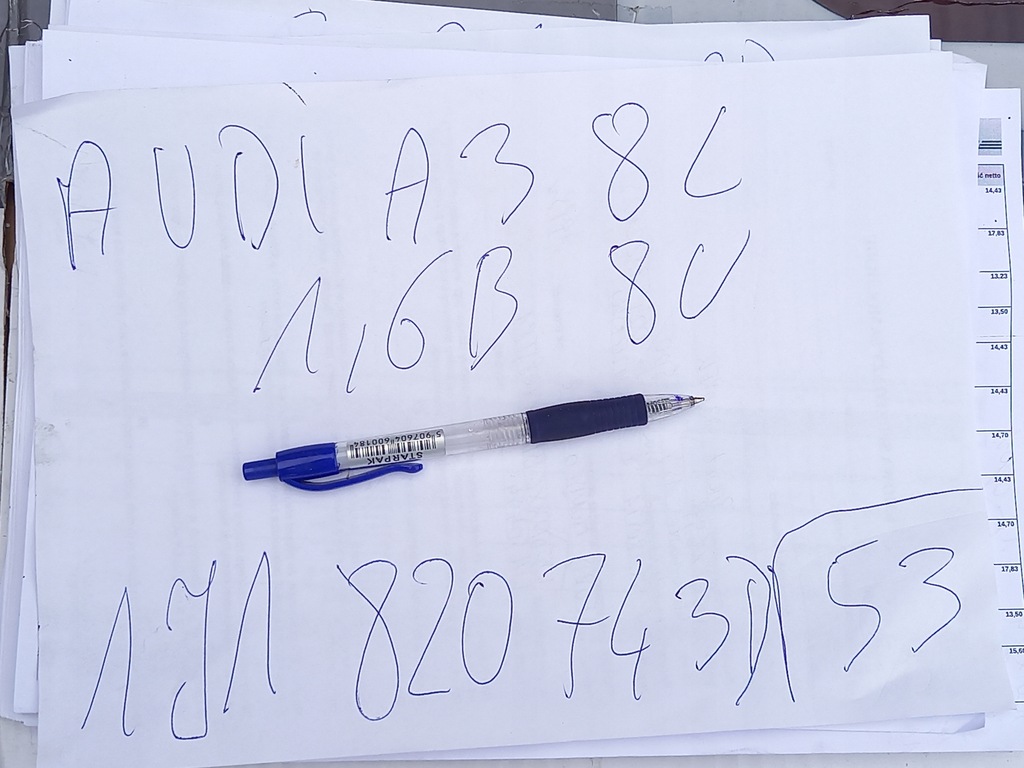 AUDI A3 8L
1,6B 8V
STARPAK
5907604600184
1J1 820 743D 53
ść netto
14,43
17,83
13,23
13,50
14,43
14,43
14,70
14,43
14,70
17,83
13,50